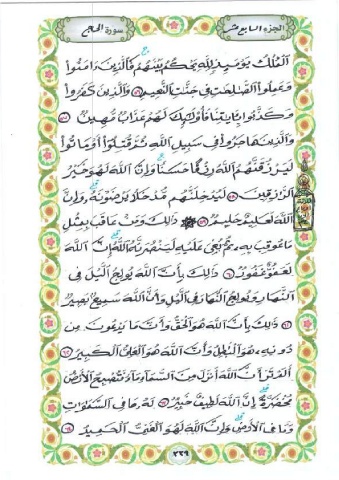 الجزء السابع عشر
سورة الحج
ٱلْمُلْكُ يَوْمَئِذٍ لِّلَّهِ يَحْكُمُ بَيْنَهُمْ فَٱلَّذِينَ ءَامَنُوا۟
وَعَمِلُوا۟ ٱلصَّٰلِحَٰتِ فِى جَنَّٰتِ ٱلنَّعِيمِ ٥٦ وَٱلَّذِينَ كَفَرُوا۟
وَكَذَّبُوا۟ بِـَٔايَٰتِنَا فَأُو۟لَٰٓئِكَ لَهُمْ عَذَابٌ مُّهِينٌ ٥٧
وَٱلَّذِينَ هَاجَرُوا۟ فِى سَبِيلِ ٱللَّهِ ثُمَّ قُتِلُوٓا۟ أَوْ مَاتُوا۟
لَيَرْزُقَنَّهُمُ ٱللَّهُ رِزْقًا حَسَنًا وَإِنَّ ٱللَّهَ لَهُوَ خَيْرُ
ٱلرَّٰزِقِينَ ٥٨ لَيُدْخِلَنَّهُم مُّدْخَلًا يَرْضَوْنَهُۥ وَإِنَّ
ٱللَّهَ لَعَلِيمٌ حَلِيمٌ ٥٩ ذَٰلِكَ وَمَنْ عَاقَبَ بِمِثْلِ
مَا عُوقِبَ بِهِۦ ثُمَّ بُغِىَ عَلَيْهِ لَيَنصُرَنَّهُ ٱللَّهُ إِنَّ ٱللَّهَ
لَعَفُوٌّ غَفُورٌ ٦٠ ذَٰلِكَ بِأَنَّ ٱللَّهَ يُولِجُ ٱلَّيْلَ فِى
ٱلنَّهَارِ وَيُولِجُ ٱلنَّهَارَ فِى ٱلَّيْلِ وَأَنَّ ٱللَّهَ سَمِيعٌۢ بَصِيرٌ
٦١ ذَٰلِكَ بِأَنَّ ٱللَّهَ هُوَ ٱلْحَقُّ وَأَنَّ مَا يَدْعُونَ مِن
دُونِهِۦ هُوَ ٱلْبَٰطِلُ وَأَنَّ ٱللَّهَ هُوَ ٱلْعَلِىُّ ٱلْكَبِيرُ ٦٢
أَلَمْ تَرَ أَنَّ ٱللَّهَ أَنزَلَ مِنَ ٱلسَّمَآءِ مَآءً فَتُصْبِحُ ٱلْأَرْضُ
مُخْضَرَّةً إِنَّ ٱللَّهَ لَطِيفٌ خَبِيرٌ ٦٣ لَّهُۥ مَا فِى ٱلسَّمَٰوَٰتِ
وَمَا فِى ٱلْأَرْضِ وَإِنَّ ٱللَّهَ لَهُوَ ٱلْغَنِىُّ ٱلْحَمِيدُ ٦٤
٣٣٩